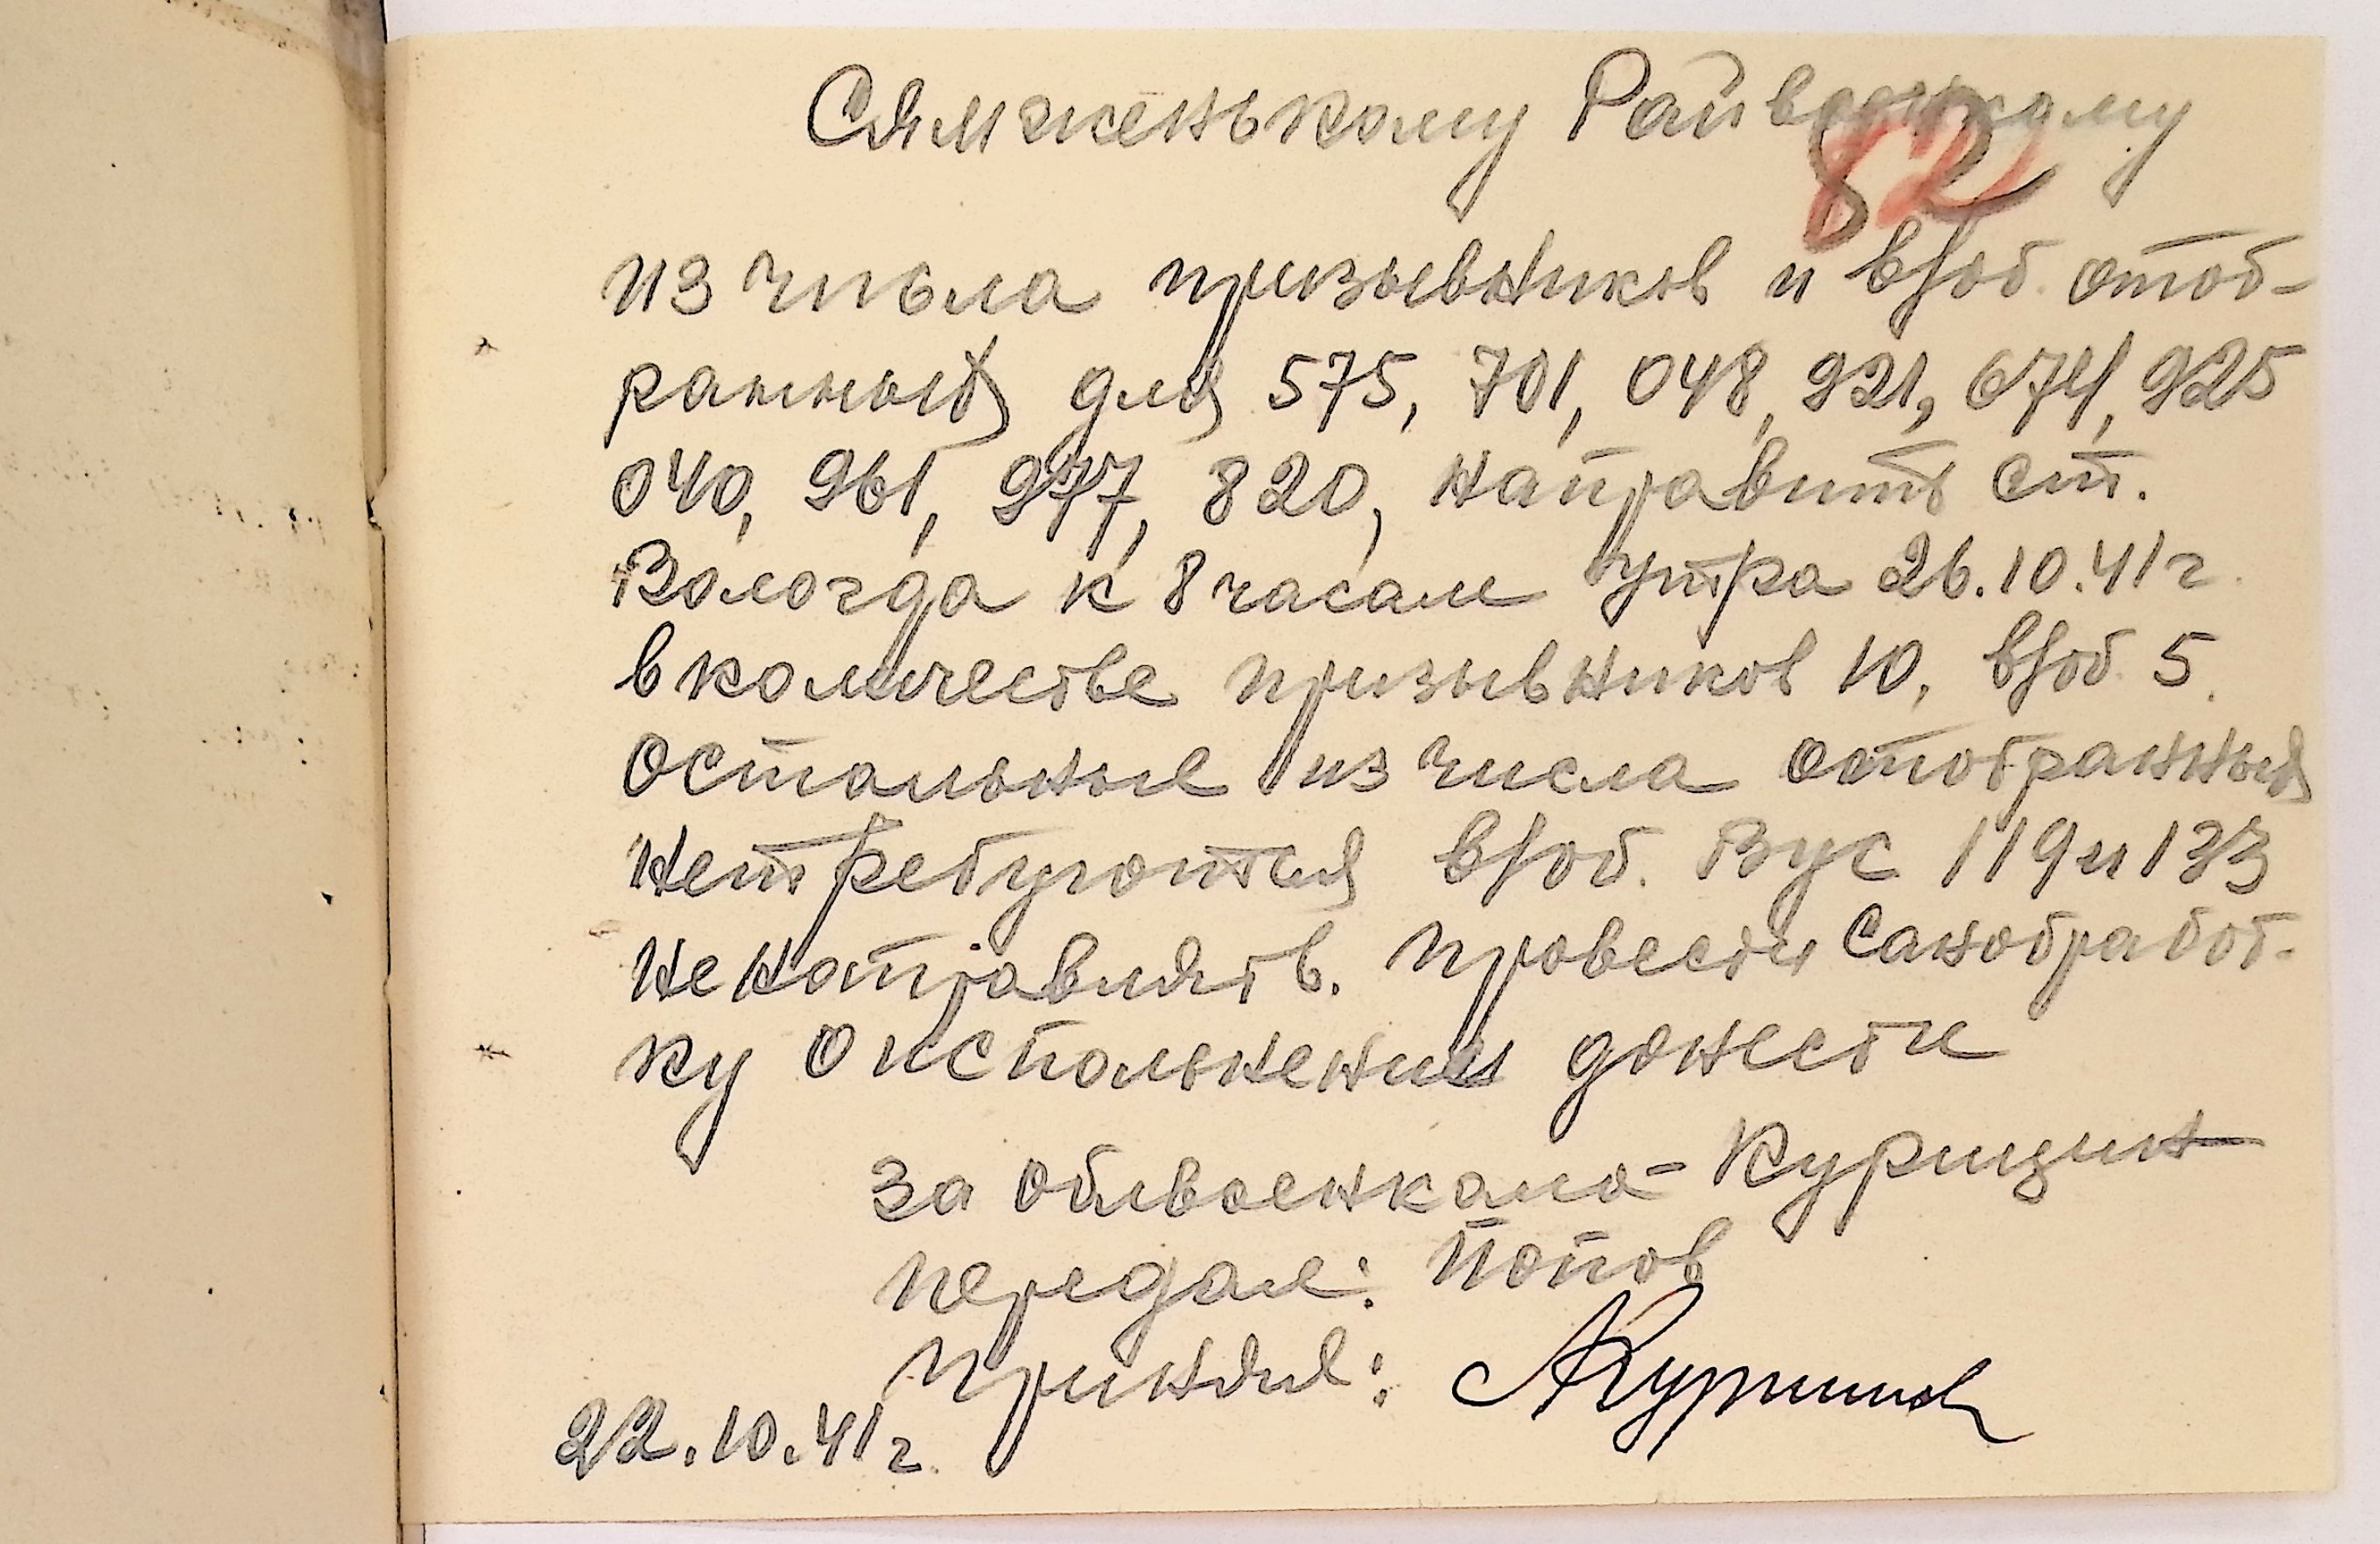 Сямженькому Райвоенкому
82
из числа призывников и в/об. отоб-
ранных для 575, 701, 048, 921, 674, 925
040, 961, 977, 820, направить ст.
Вологда к 8 часам утра 26.10.41 г.
в количестве призывников 10, в/об. 5.
Остальные из числа отобранных
нетребуются в/об. Вус 119 и 133
не направлять. провести Санобработ-
ку О исполнении донести
За Облвоенкома - Курицин
передал: Попов
Принял:
22.10.41 г.